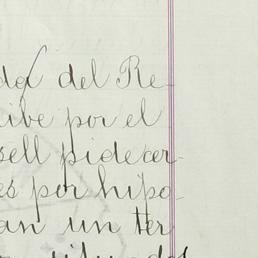 da del Re-
ibe por el
sell pide cer-
es por hipo-
an un ter